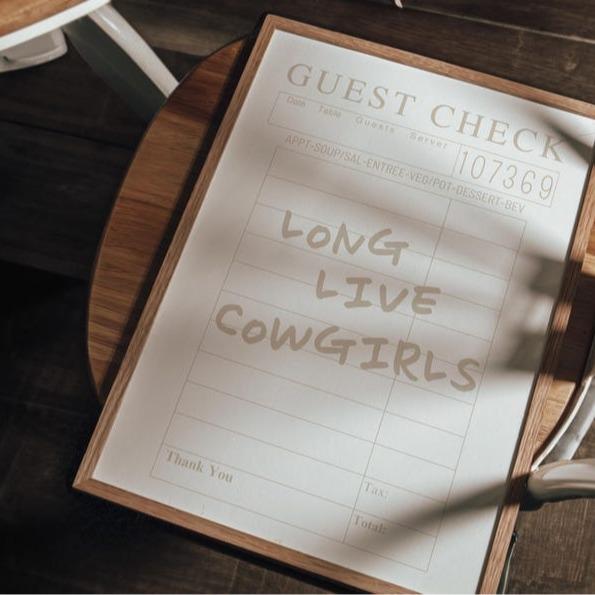 GUEST CHECK
Date Table Guests Server
107369
APPT-SOUP/SAL-ENTREE-VEG/POT-DESSERT-BEV
LONG
LIVE
COWGIRLS
Thank You
Tax:
Total: